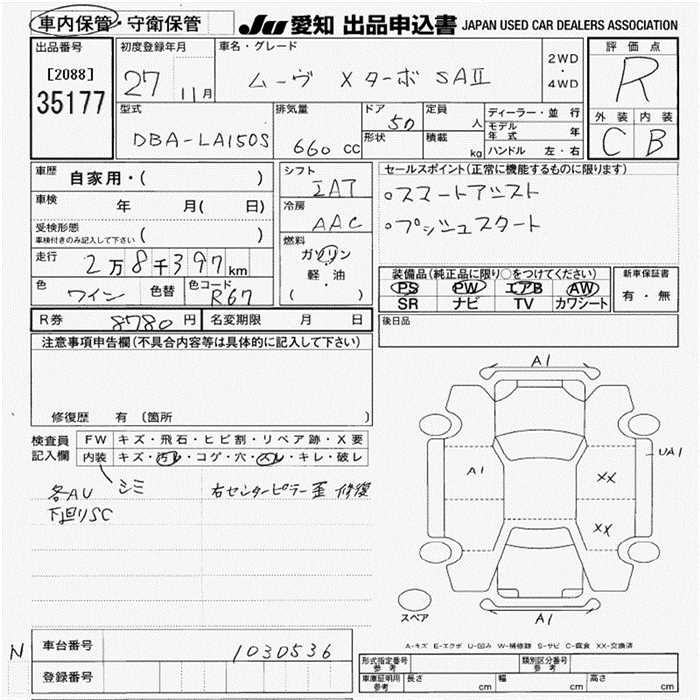 車内保管・守衛保管
JU 愛知 出品申込書 JAPAN USED CAR DEALERS ASSOCIATION
出品番号
[2088]
35177
初度登録年月
27 11月
車名・グレード
ムーヴ Xターボ SAⅡ
2WD
・
4WD
評価点
R
外装 内装
C B
型式
DBA-LA150S
排気量
660 cc
ドア 5D
形状
定員 人
積載 kg
ディーラー・並行
モデル年式 年
ハンドル 左・右
車歴 自家用・( )
車検 年 月( 日)
受検形態
車検付きのみ記入して下さい ( )
走行 2万8千397km
色 ワイン 色替 色コード R67
シフト
IAT
冷房
AAC
燃料
ガソリン
軽・油
( )
セールスポイント(正常に機能するものに限ります)
○スマートアシスト
○プッシュスタート
装備品(純正品に限り○をつけてください)
PS PW エアB AW
SR ナビ TV カワシート
新車保証書
有・無
R券 8780円 名変期限 月 日
後日品
注意事項申告欄(不具合内容等は具体的に記入して下さい)
修復歴 有 〔箇所 〕
検査員
記入欄
FW キズ・飛石・ヒビ割・リペア跡・X要
内装 キズ・汚レ・コゲ・穴・スレ・キレ・破レ
シミ
各AU
下回りSC
右センターピラー歪 修復
A1
UA1
A1
XX
XX
A1
スペア
A-キズ E-エクボ U-凹み W-補修跡 S-サビ C-腐食 XX-交換済
N
車台番号 1030536
登録番号
形式指定番号
参考
類別区分番号
参考
車庫証明用
参考
長さ cm 幅 cm 高さ cm